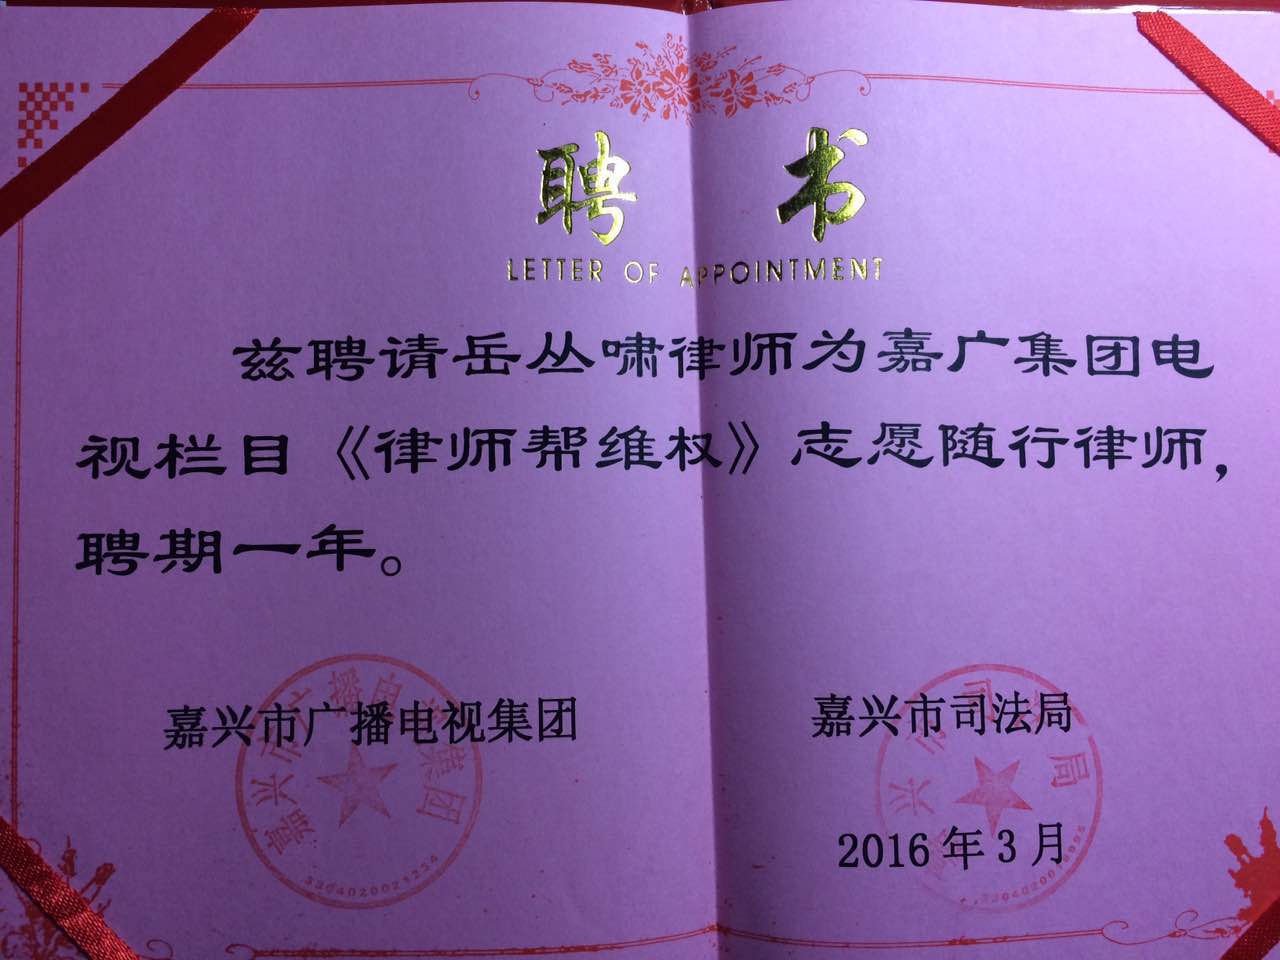 聘书
LETTER OF APPOINTMENT
兹聘请岳丛啸律师为嘉广集团电
视栏目《律师帮维权》志愿随行律师，
聘期一年。
嘉兴市广播电视集团
嘉兴市司法局
2016年3月
嘉兴市广播电视集团
3304020021234